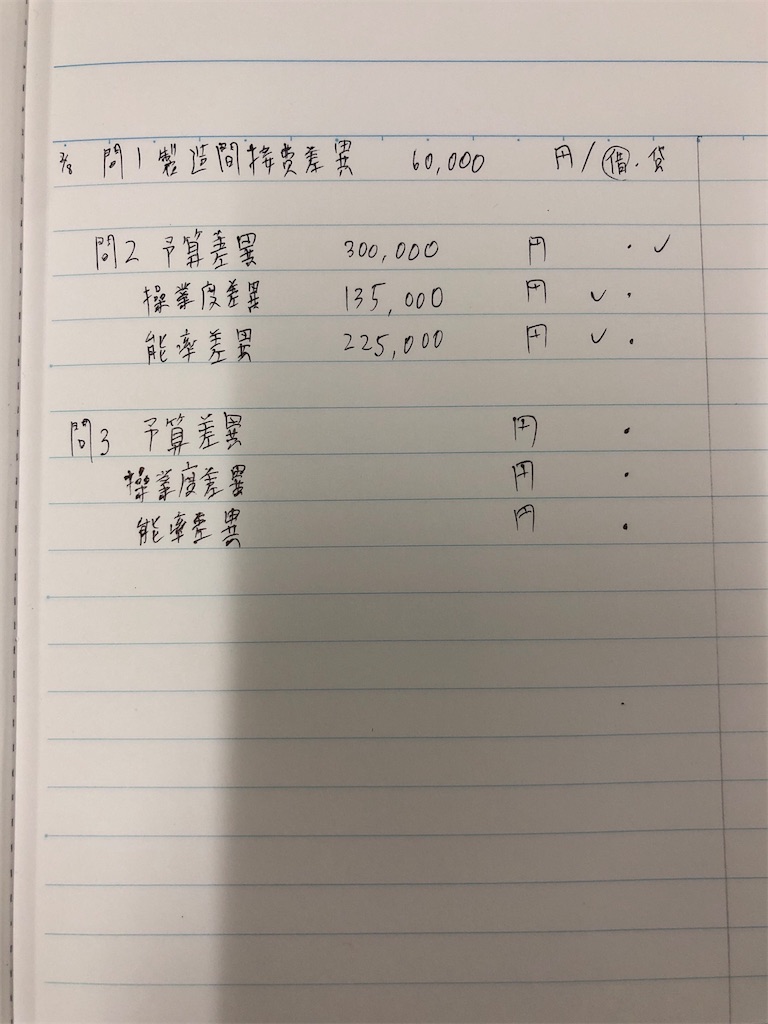 3/8 問1 製造間接費差異 60,000 円/借・貸
問2 予算差異 300,000 円 ・✓
操業度差異 135,000 円 ✓・
能率差異 225,000 円 ✓・
問3 予算差異 円 ・
操業度差異 円 ・
能率差異 円 ・